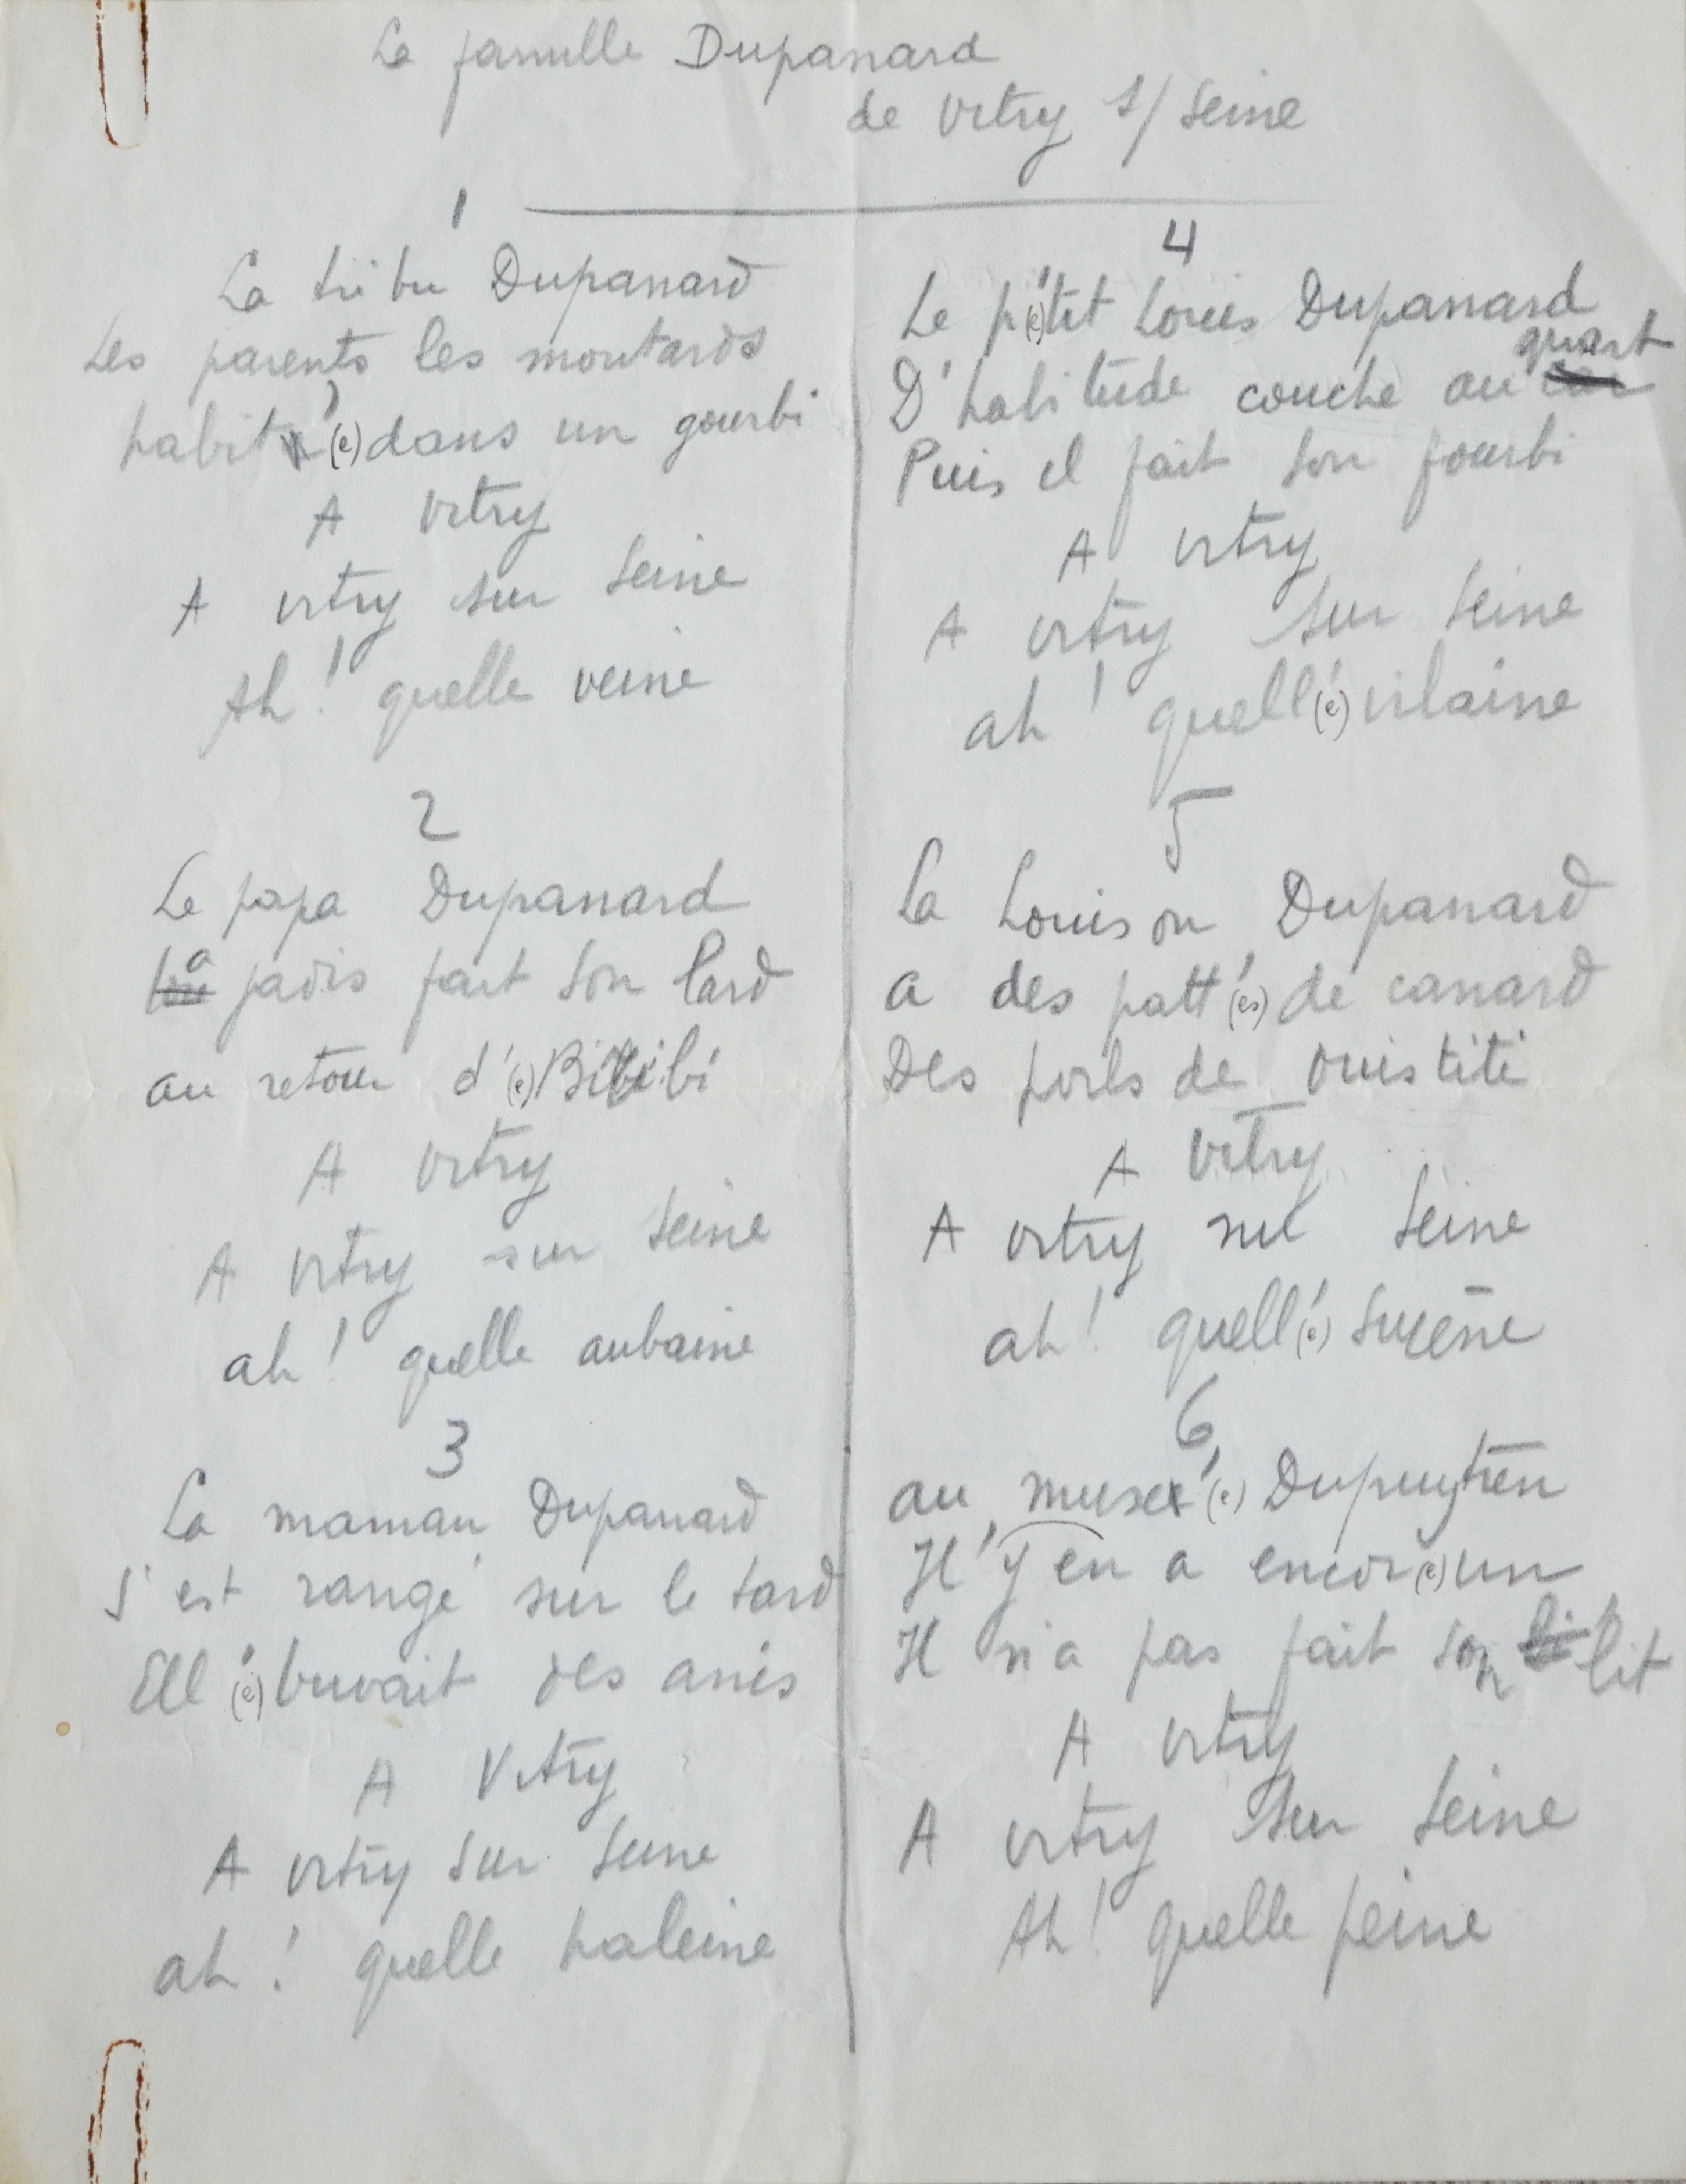 La famille Dupanard
de Vitry s/ Seine
1
La tribu Dupanard
Les parents les moutards
habit'(e) dans un gourbi
A Vitry
A Vitry sur Seine
Ah ! quelle veine
2
Le papa Dupanard
a jadis fait son lard
au retour d'(e) Biribi
A Vitry
A Vitry sur Seine
ah ! quelle aubaine
3
La maman Dupanard
S'est rangé sur le tard
Ell'(e) buvait des anis
A Vitry
A Vitry sur Seine
ah ! quelle haleine
4
Le p'(e)tit Louis Dupanard
D'habitude couche au quart
Puis il fait son fourbi
A Vitry
A Vitry sur Seine
ah ! quell'(e) vilaine
5
La Louison Dupanard
a des patt'(es) de canard
Des poils de ouistiti
A Vitry
A Vitry sur Seine
ah ! quell'(e) surène
6
au muse'(e) Dupuytren
Il y en a encor(e) un
Il n'a pas fait son lit
A Vitry
A Vitry sur Seine
Ah ! quelle peine